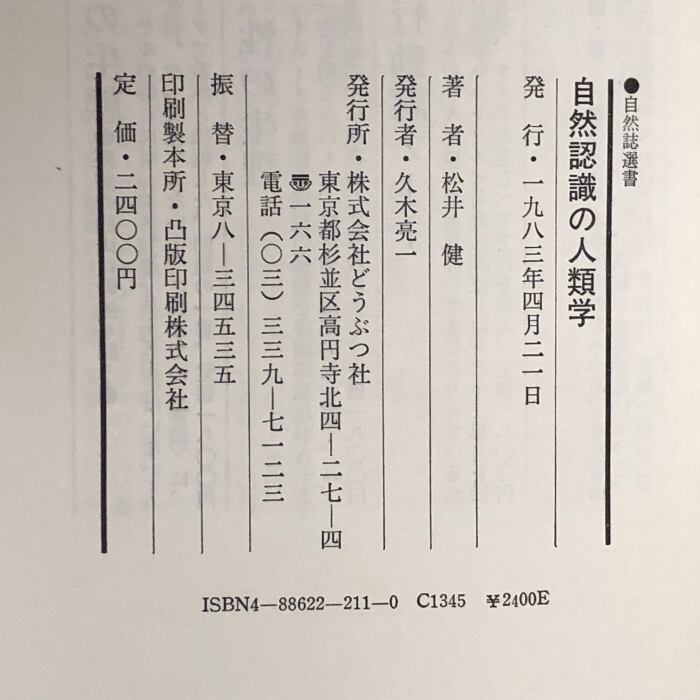 ●自然誌選書
自然認識の人類学
発　行・一九八三年四月二一日
著　者・松井　健
発行者・久木亮一
発行所・株式会社どうぶつ社
東京都杉並区高円寺北四―二七―四
〠一六六
電話（〇三）三三九―七一二三
振　替・東京八―三四五三五
印刷製本所・凸版印刷株式会社
定　価・二四〇〇円
ISBN4―88622―211―0　C1345　¥2400E